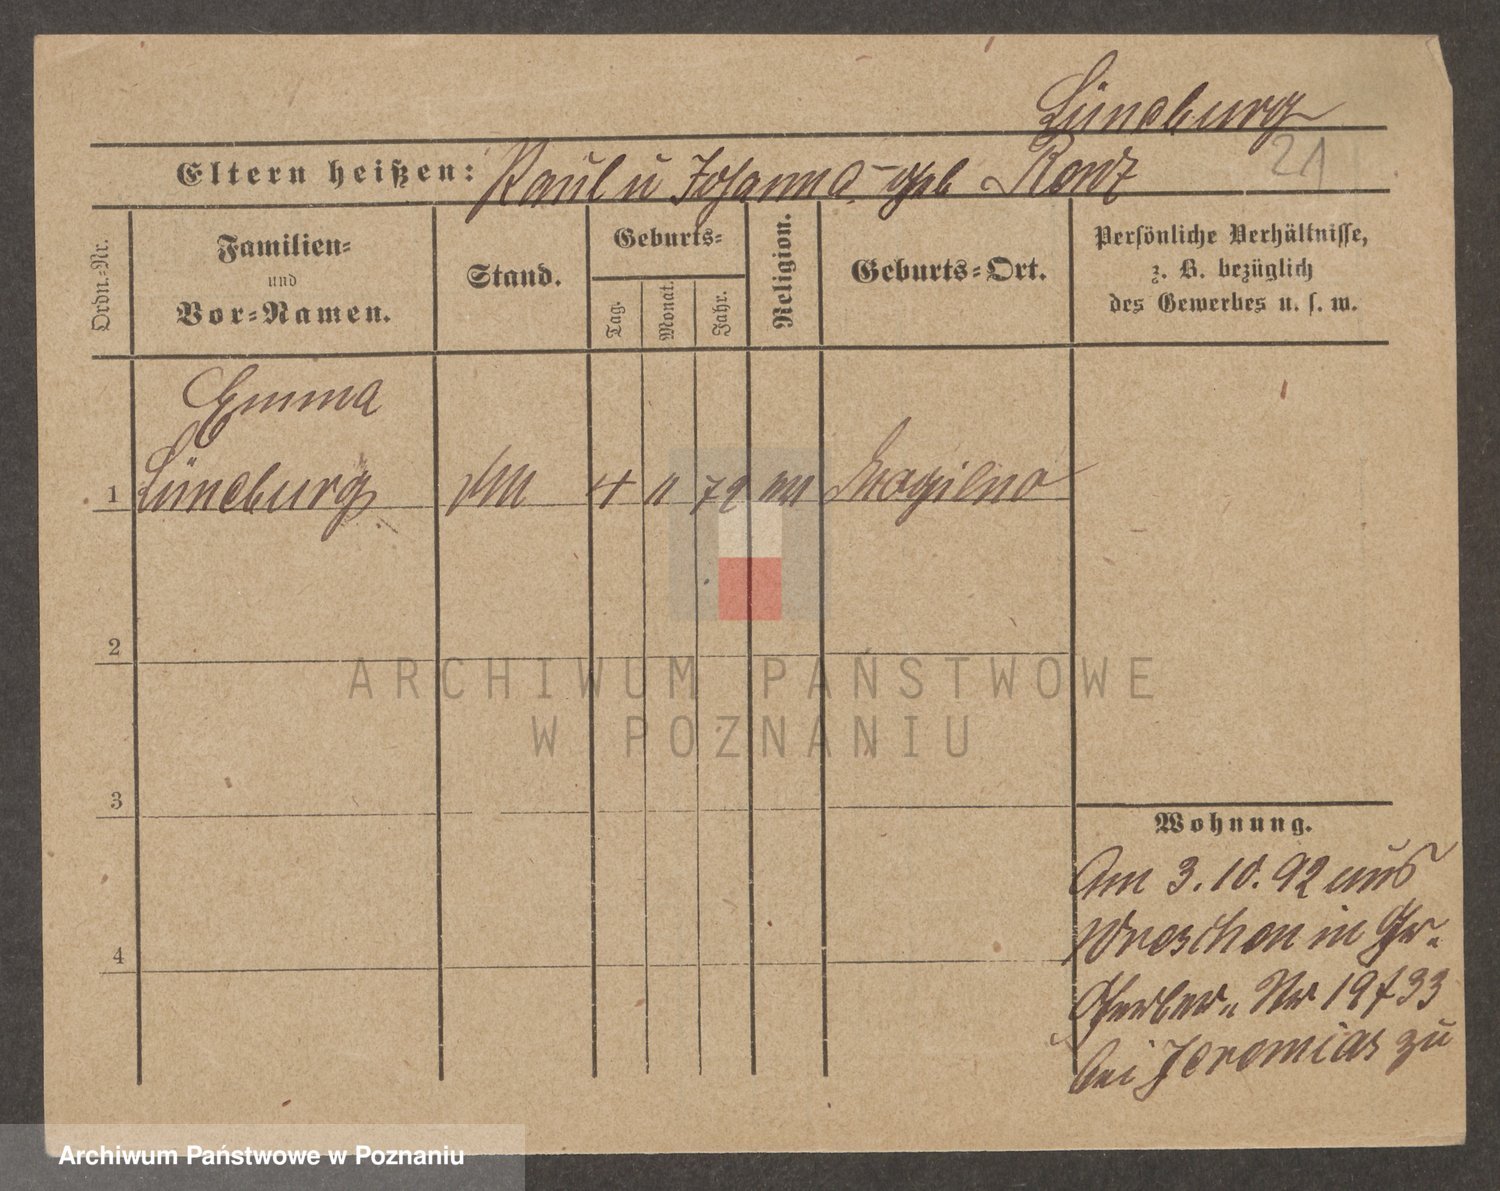 Lüneburg
21
Eltern heißen: Paul u Johanna geb
Ordn.-Nr.
Familien-
und
Vor-Namen.
Stand.
Geburts-
Tag.
Monat.
Jahr.
Religion.
Geburts-Ort.
Persönliche Verhältnisse,
z. B. bezüglich
des Gewerbes u. s. w.
Emma
1 Lüneburg 4 11 72 Mogilno
2
3
4
Wohnung.
Am 3.10.92 aus
Wreschen in Gr.
Gerber. Nr 19 f 33
bei Jeremias zu
ARCHIWUM PAŃSTWOWE
W POZNANIU
Archiwum Państwowe w Poznaniu